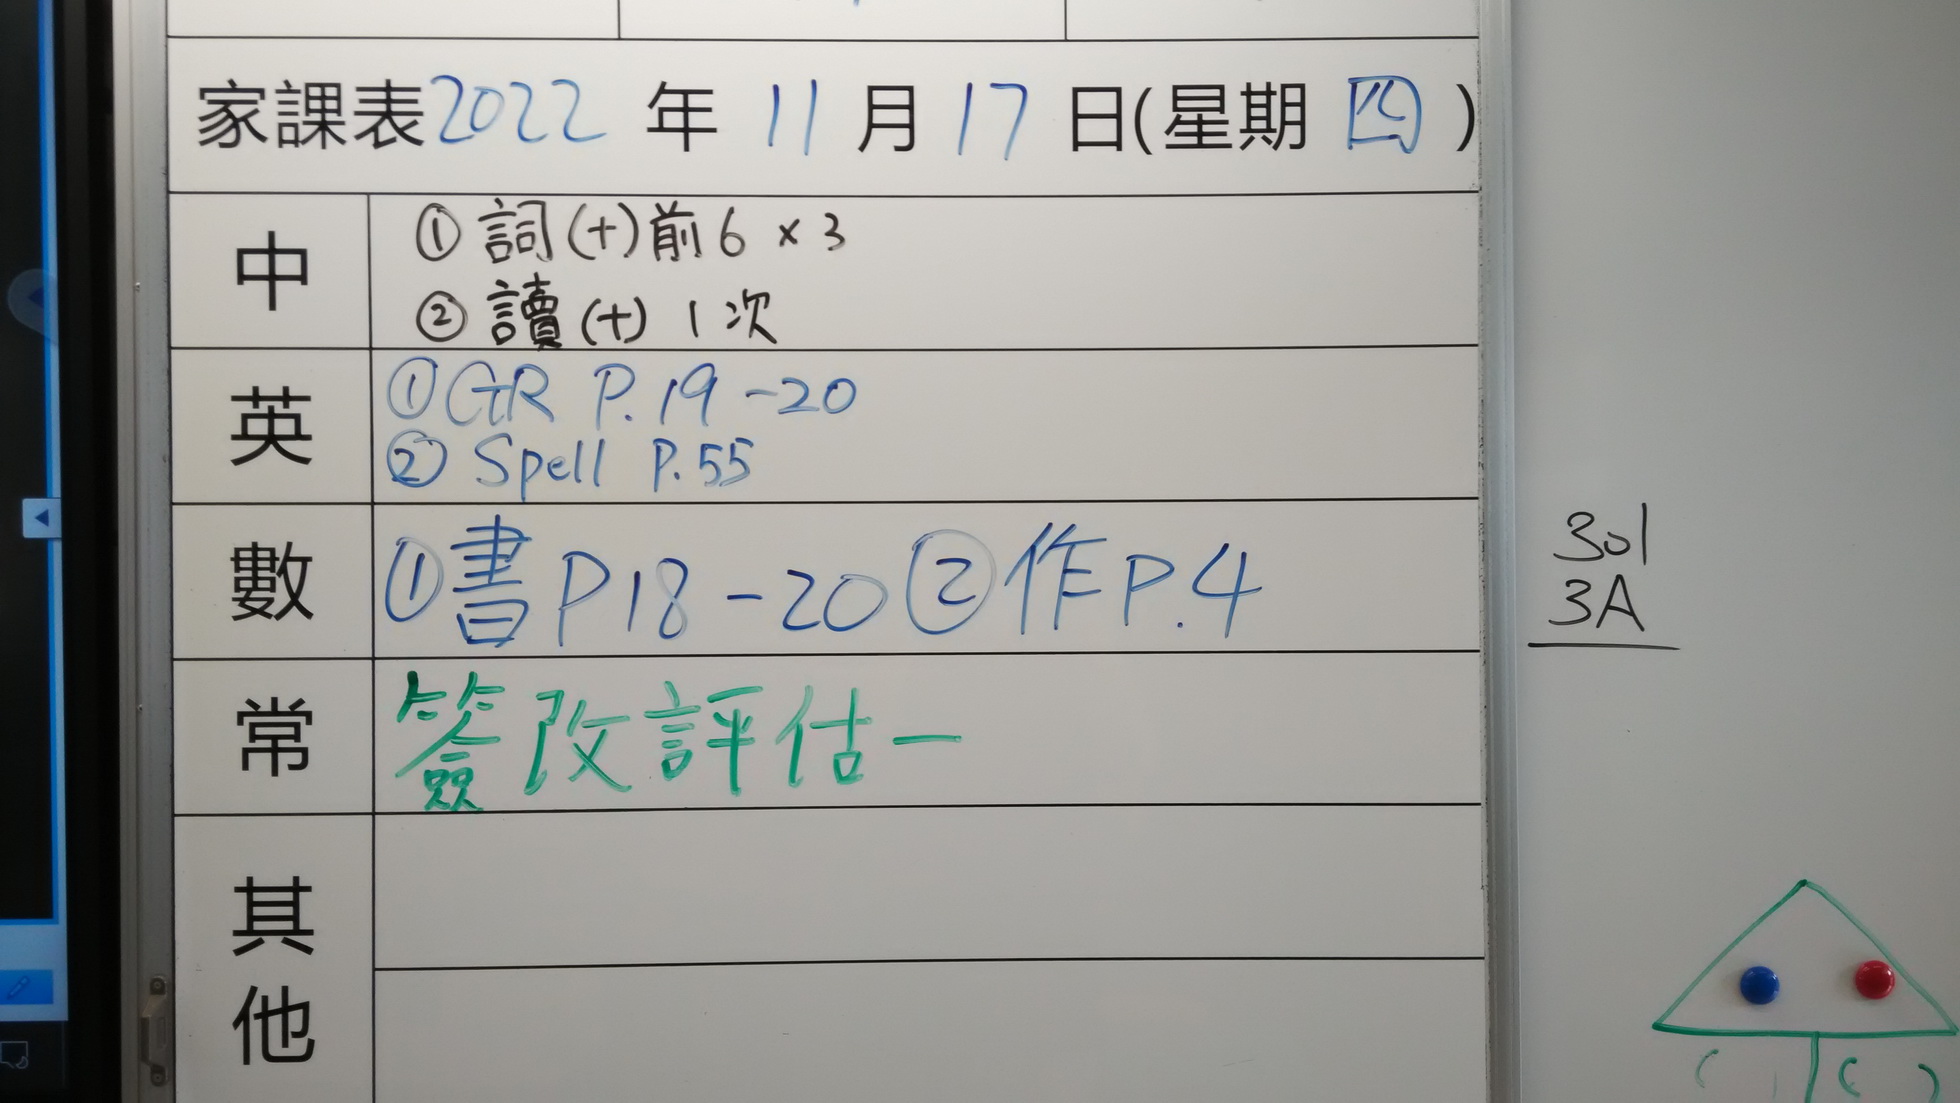 家課表2022年11月17日(星期四)
中
① 詞(十)前6×3
② 讀(十)1次
英
①GR P.19-20
② Spell P.55
數
①書P18-20②作P.4
常
簽改評估一
其他
301
3A
( ) ( )